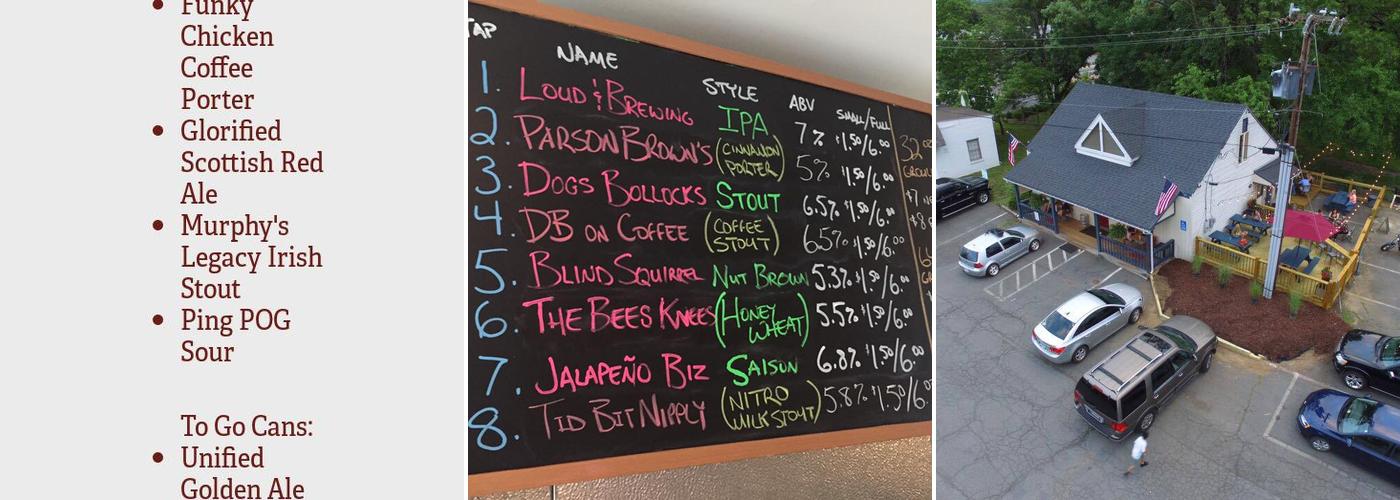 Funky
Chicken
Coffee
Porter
Glorified
Scottish Red
Ale
Murphy's
Legacy Irish
Stout
Ping POG
Sour
To Go Cans:
Unified
Golden Ale
TAP NAME STYLE ABV SMALL/FULL
1. LOUD & BREWING IPA 7% $1.50/6.00
2. PARSON BROWN'S (CINNAMON PORTER) 5% $1.50/6.00
3. DOGS BOLLOCKS STOUT 6.5% $1.50/6.00
4. DB ON COFFEE (COFFEE STOUT) 6.5% $1.50/6.00
5. BLIND SQUIRREL NUT BROWN 5.3% $1.50/6.00
6. THE BEES KNEES (HONEY WHEAT) 5.5% $1.50/6.00
7. JALAPEÑO BIZ SAISON 6.8% $1.50/6.00
8. TID BIT NIPPLY (NITRO MILK STOUT) 5.8% $1.50/6.0